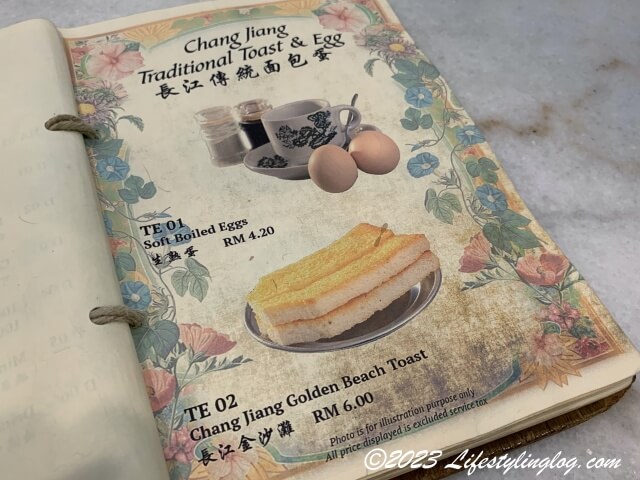 Chang Jiang
Traditional Toast & Egg
長江傳統面包蛋
TE 01
Soft Boiled Eggs
生熟蛋 RM 4.20
TE 02
Chang Jiang Golden Beach Toast
長江金沙灘 RM 6.00
Photo is for illustration purpose only
All price displayed is excluded service tax
©2023 Lifestylinglog.com